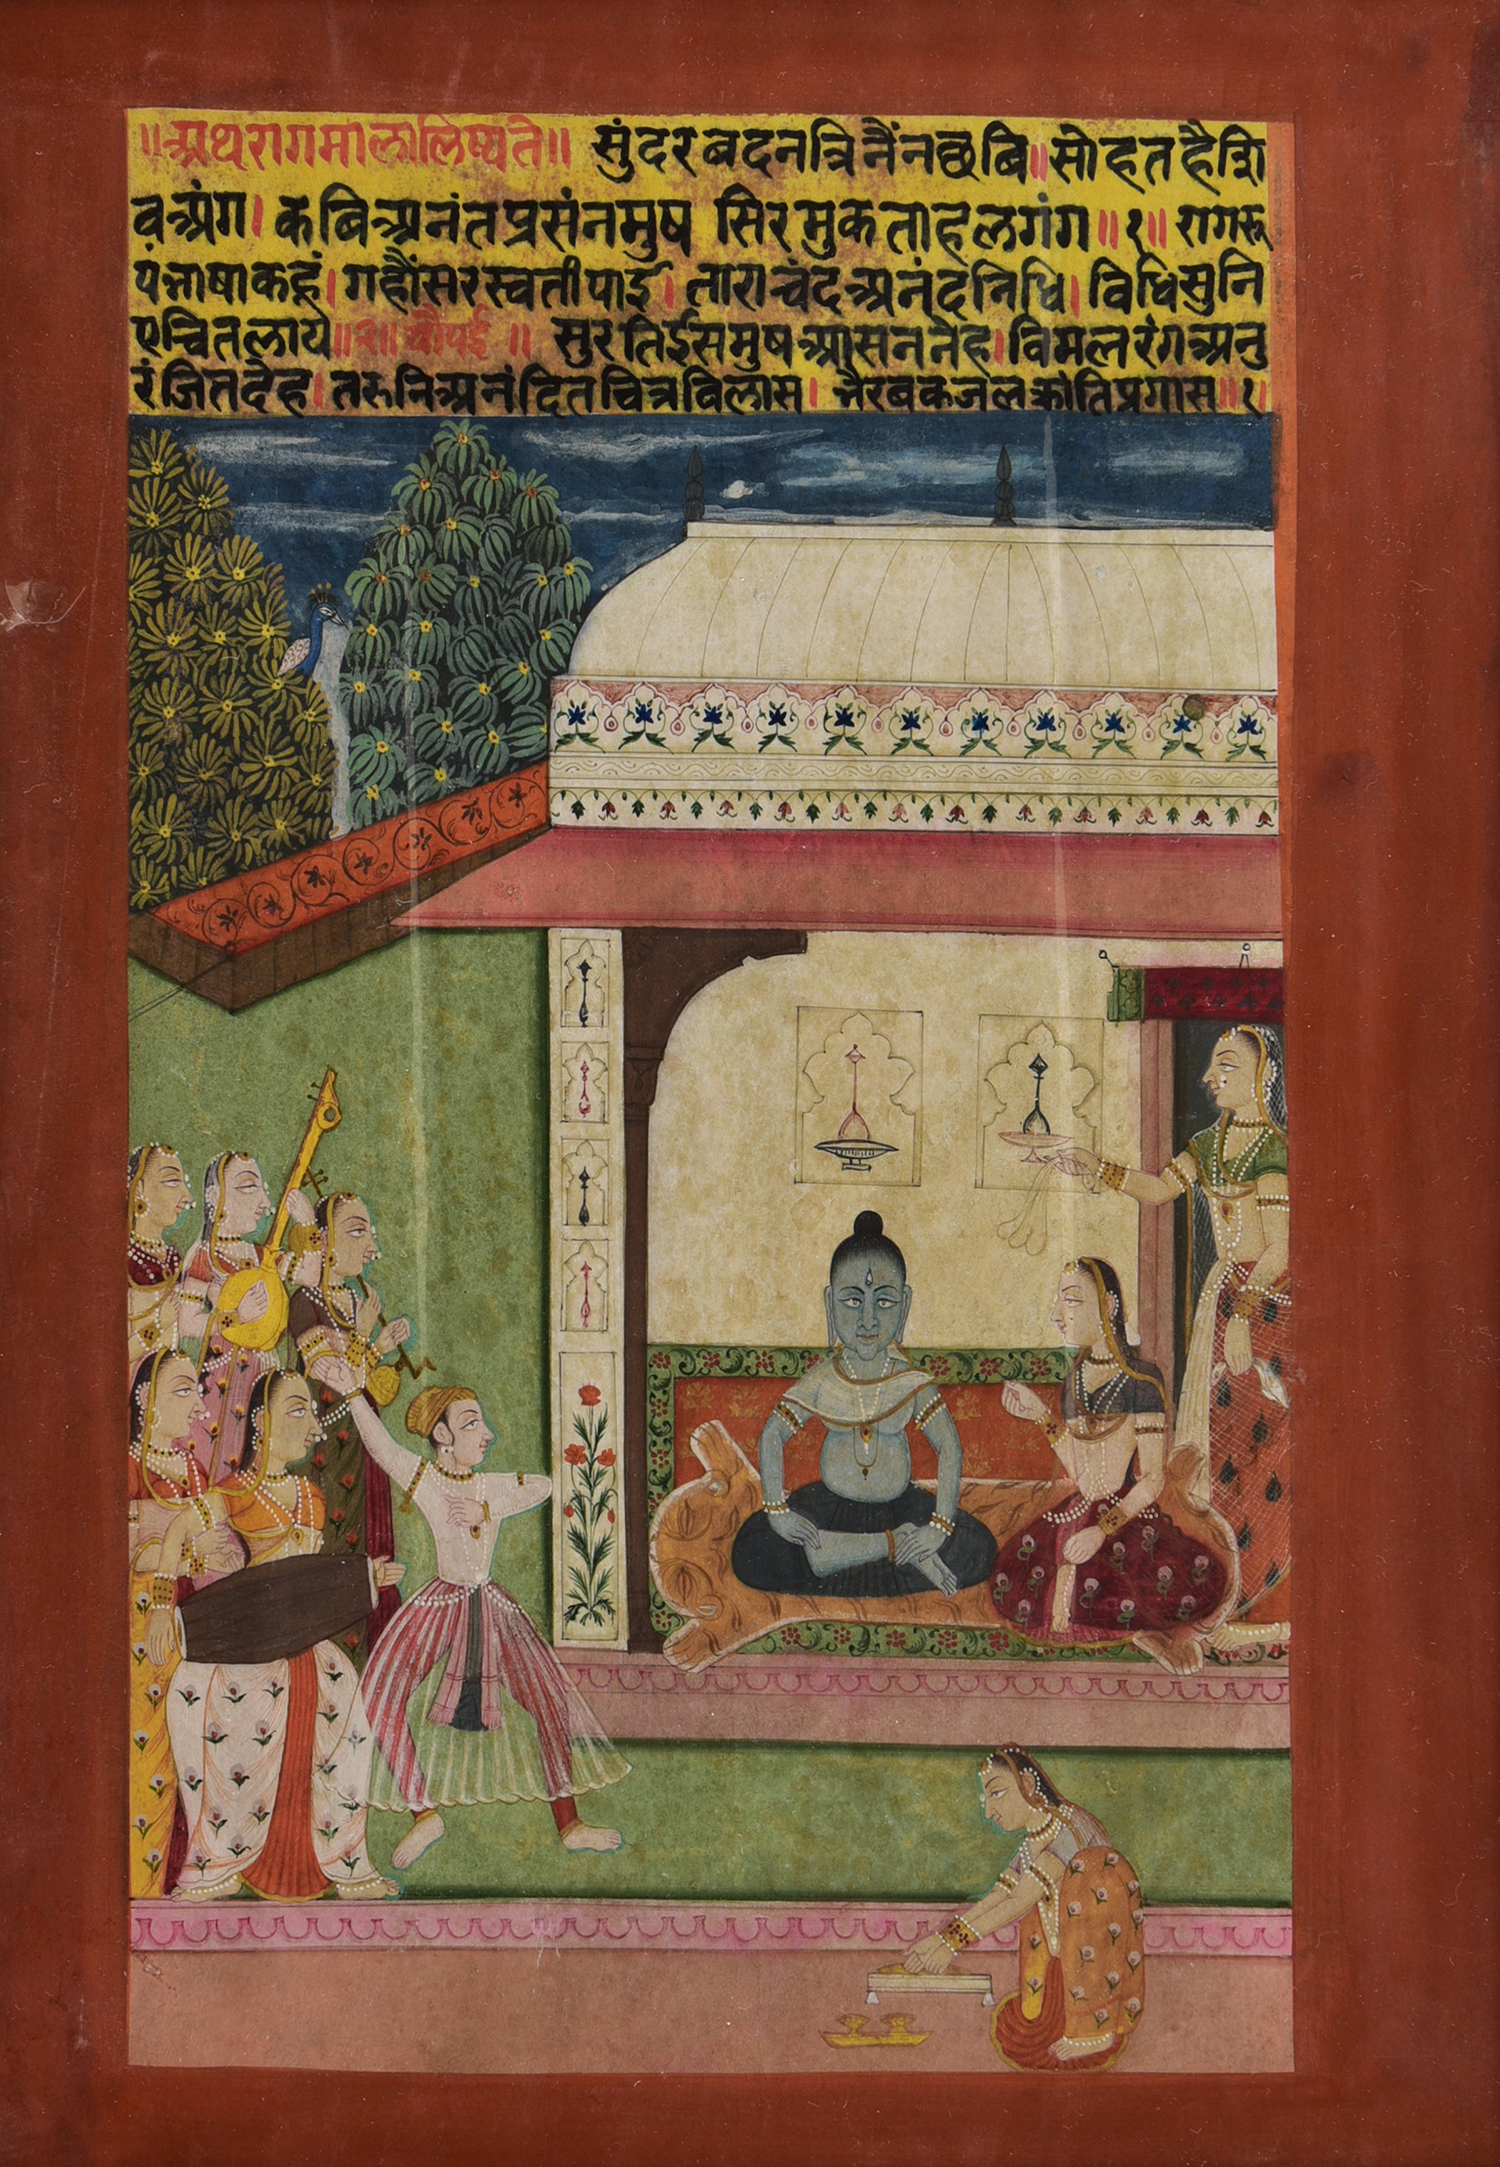 ॥अथरागमालालिष्यते॥ सुंदरबदनत्रिनैंनछबि॥सोहतहैशि
वअंग। कबिअनंतप्रसंनमुष सिरमुकताहलगंग॥१॥ रागरू
पभाषाकहूं। गहौंसरस्वतीपाइ। ताराचंदअनंदनिधि। विधिसुनि
एचितलाय॥२॥चौपई॥ सुरतिईसमुषआसननेह। विमलरंगअनु
रंजितदेह। तरुनिअनंदितचित्रविलास। भैरबकजलक्रांतिप्रगास॥१।